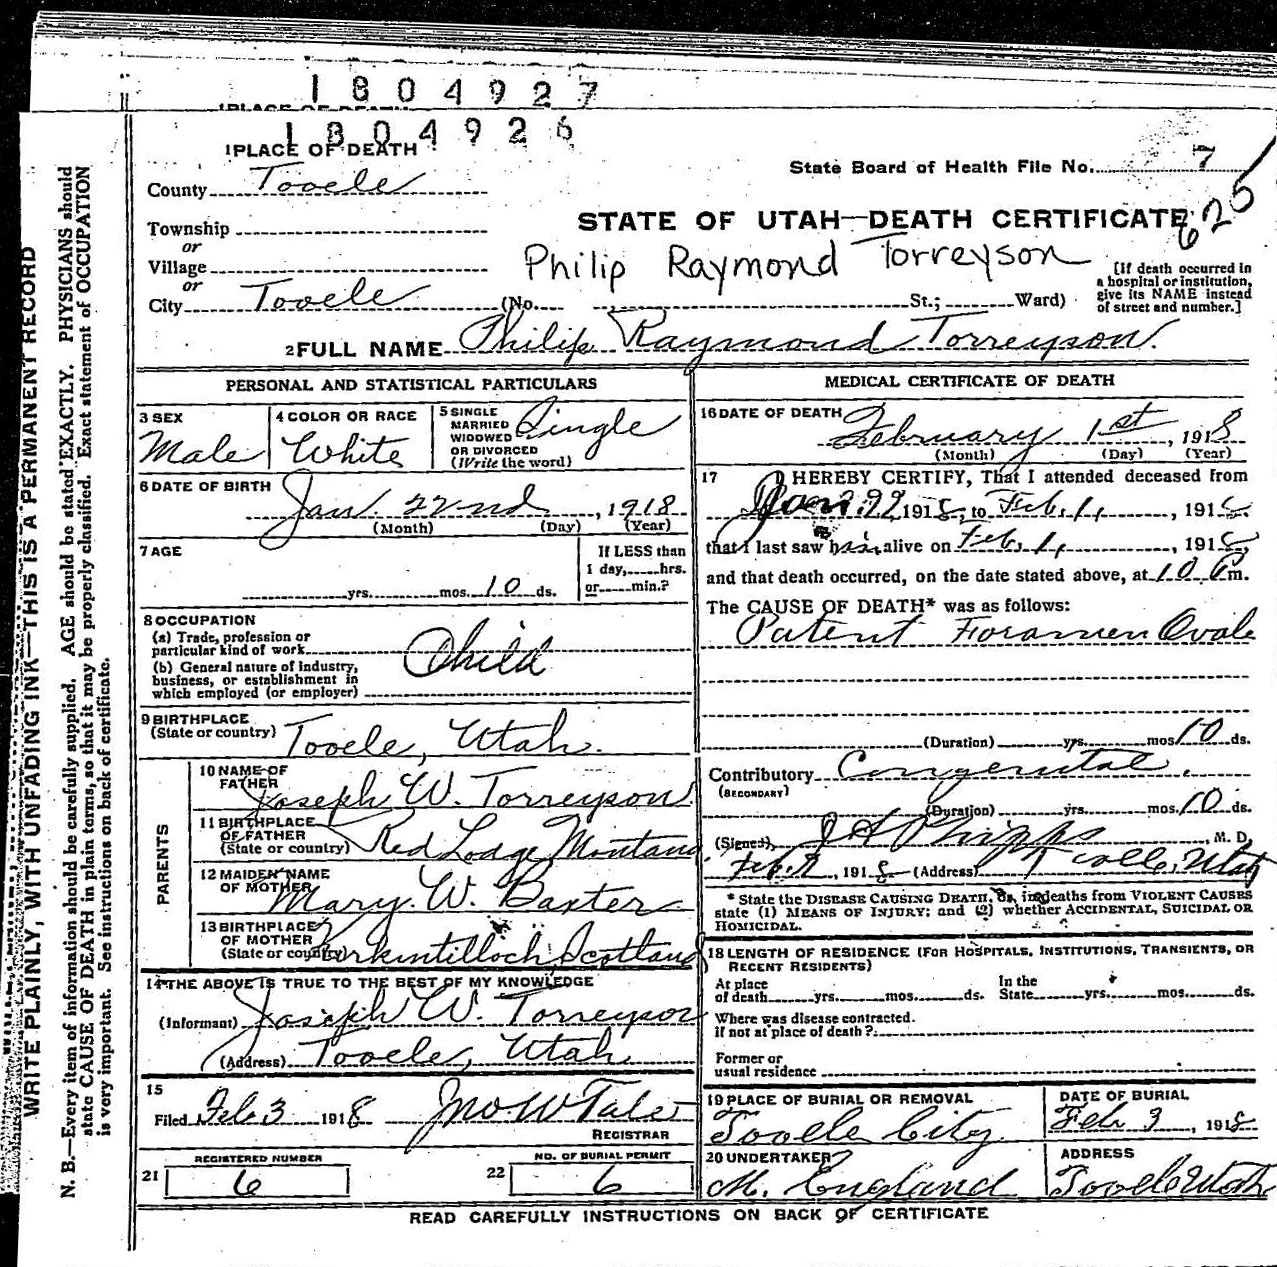 1804927
1804926
1 PLACE OF DEATH
State Board of Health File No. 7
625
County Tooele
STATE OF UTAH—DEATH CERTIFICATE
Township
or
Philip Raymond Torreyson
Village
or
City Tooele (No. St.; Ward)
[If death occurred in
a hospital or institution,
give its NAME instead
of street and number.]
2 FULL NAME Philip Raymond Torreyson.
PERSONAL AND STATISTICAL PARTICULARS
3 SEX
Male
4 COLOR OR RACE
White
5 SINGLE
MARRIED
WIDOWED
OR DIVORCED
(Write the word)
Single
6 DATE OF BIRTH
Jan. 22nd, 1918
(Month) (Day) (Year)
7 AGE
yrs. mos. 10 ds.
If LESS than
1 day, hrs.
or min.?
8 OCCUPATION
(a) Trade, profession or
particular kind of work
(b) General nature of industry,
business, or establishment in
which employed (or employer)
Child
9 BIRTHPLACE
(State or country) Tooele, Utah.
PARENTS
10 NAME OF
FATHER
Joseph W. Torreyson
11 BIRTHPLACE
OF FATHER
(State or country) Red Lodge Montana
12 MAIDEN NAME
OF MOTHER
Mary W. Baxter
13 BIRTHPLACE
OF MOTHER
(State or country) Kirkintilloch Scotland
14 THE ABOVE IS TRUE TO THE BEST OF MY KNOWLEDGE
(Informant) Joseph W. Torreyson
(Address) Tooele, Utah.
15
Filed Feb 3 1918 Jno. W Tate
REGISTRAR
REGISTERED NUMBER
21 6
NO. OF BURIAL PERMIT
22 6
MEDICAL CERTIFICATE OF DEATH
16 DATE OF DEATH
February 1st, 1918
(Month) (Day) (Year)
17 I HEREBY CERTIFY, That I attended deceased from
Jan. 22, 1918, to Feb. 1, 1918,
that I last saw him alive on Feb. 1, 1918,
and that death occurred, on the date stated above, at 10 P m.
The CAUSE OF DEATH* was as follows:
Patent Foramen Ovale
(Duration) yrs. mos. 10 ds.
Contributory Congenital.
(SECONDARY)
(Duration) yrs. mos. 10 ds.
(Signed) J A Phipps, M. D.
Feb. 2, 1918 (Address) Tooele, Utah
* State the DISEASE CAUSING DEATH, or, in deaths from VIOLENT CAUSES
state (1) MEANS OF INJURY; and (2) whether ACCIDENTAL, SUICIDAL OR
HOMICIDAL.
18 LENGTH OF RESIDENCE (FOR HOSPITALS, INSTITUTIONS, TRANSIENTS, OR
RECENT RESIDENTS)
At place
of death yrs. mos. ds.
In the
State yrs. mos. ds.
Where was disease contracted.
if not at place of death?
Former or
usual residence
19 PLACE OF BURIAL OR REMOVAL
Tooele City
DATE OF BURIAL
Feb 3, 1918
20 UNDERTAKER
M. England
ADDRESS
Tooele Utah
READ CAREFULLY INSTRUCTIONS ON BACK OF CERTIFICATE
WRITE PLAINLY, WITH UNFADING INK—THIS IS A PERMANENT RECORD
N. B.—Every item of information should be carefully supplied. AGE should be stated EXACTLY. PHYSICIANS should
state CAUSE OF DEATH in plain terms, so that it may be properly classified. Exact statement of OCCUPATION
is very important. See instructions on back of certificate.